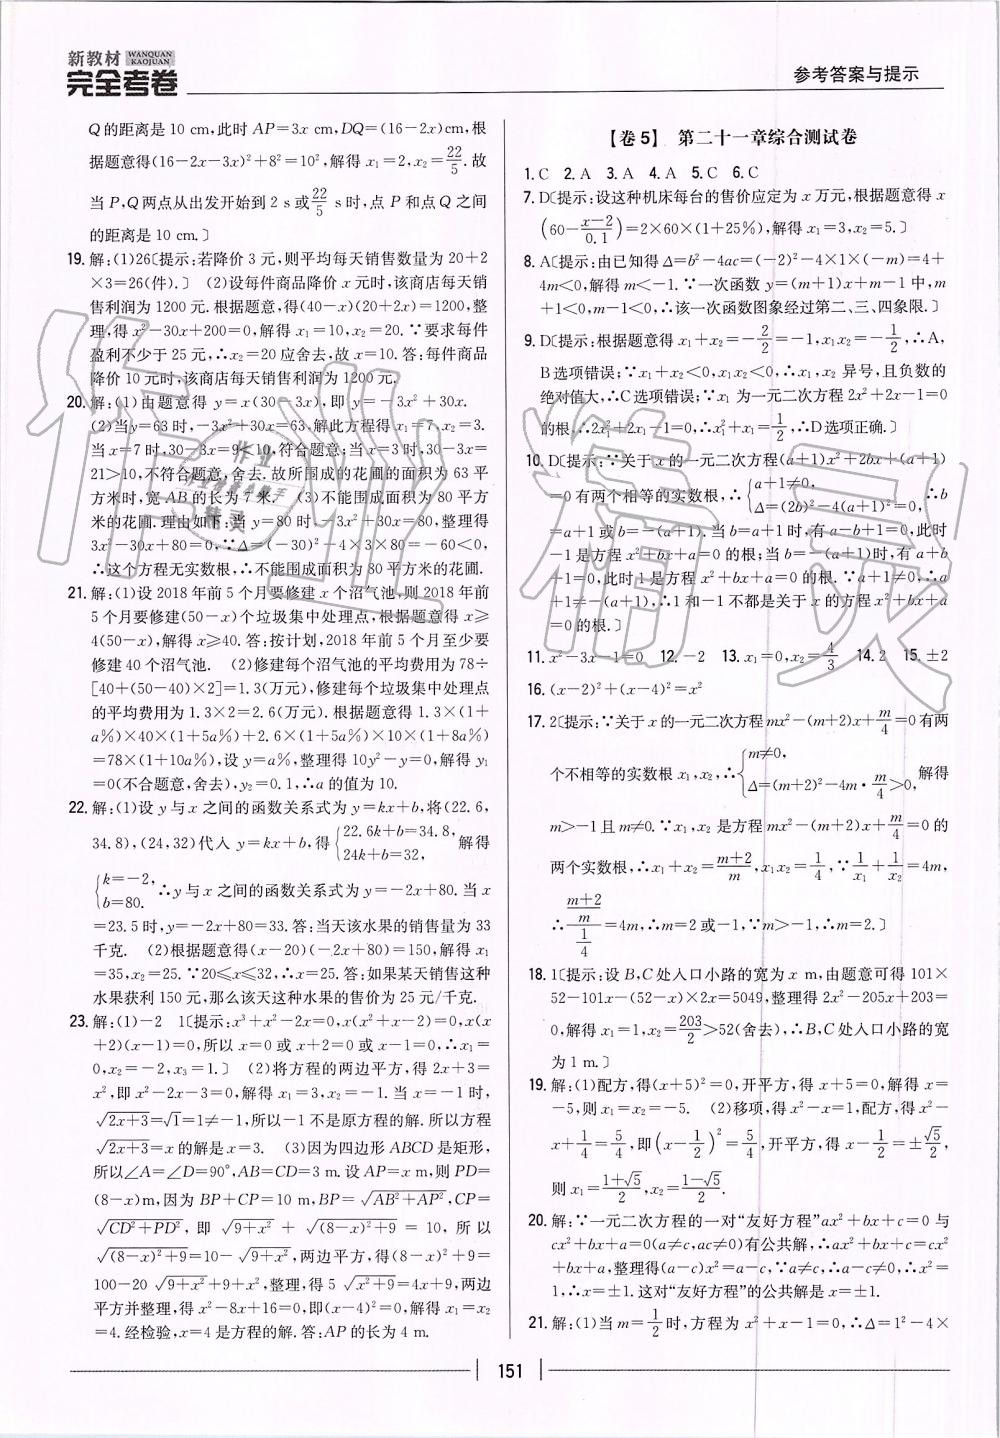 新教材 WANQUAN KAOJUAN
完全考卷
参考答案与提示
Q的距离是10 cm,此时AP=3x cm,DQ=(16-2x)cm,根
据题意得(16-2x-3x)²+8²=10²,解得x₁=2,x₂=22/5.故
当P,Q两点从出发开始到2 s或22/5 s时,点P和点Q之间
的距离是10 cm.〕
19.解:(1)26〔提示:若降价3元,则平均每天销售数量为20+2
×3=26(件).〕 (2)设每件商品降价x元时,该商店每天销
售利润为1200元.根据题意,得(40-x)(20+2x)=1200,整
理,得x²-30x+200=0,解得x₁=10,x₂=20.∵要求每件
盈利不少于25元,∴x₂=20应舍去,故x=10.答:每件商品
降价10元时,该商店每天销售利润为1200元.
20.解:(1)由题意得y=x(30-3x),即y=-3x²+30x.
(2)当y=63时,-3x²+30x=63,解此方程得x₁=7,x₂=3.
当x=7时,30-3x=9<10,符合题意;当x=3时,30-3x=
21>10,不符合题意,舍去.故所围成的花圃的面积为63平
方米时,宽AB的长为7米. (3)不能围成面积为80平方
米的花圃.理由如下:当y=80时,-3x²+30x=80,整理得
3x²-30x+80=0,∵Δ=(-30)²-4×3×80=-60<0,
∴这个方程无实数根,∴不能围成面积为80平方米的花圃.
21.解:(1)设2018年前5个月要修建x个沼气池,则2018年前
5个月要修建(50-x)个垃圾集中处理点,根据题意得x≥
4(50-x),解得x≥40.答:按计划,2018年前5个月至少要
修建40个沼气池. (2)修建每个沼气池的平均费用为78÷
[40+(50-40)×2]=1.3(万元),修建每个垃圾集中处理点
的平均费用为1.3×2=2.6(万元).根据题意得1.3×(1+
a%)×40×(1+5a%)+2.6×(1+5a%)×10×(1+8a%)
=78×(1+10a%),设y=a%,整理得10y²-y=0,解得y₁
=0(不合题意,舍去),y₂=0.1,∴a的值为10.
22.解:(1)设y与x之间的函数关系式为y=kx+b,将(22.6,
34.8),(24,32)代入y=kx+b,得{22.6k+b=34.8, 24k+b=32, 解得
{k=-2, b=80. ∴y与x之间的函数关系式为y=-2x+80.当x
=23.5时,y=-2x+80=33.答:当天该水果的销售量为33
千克. (2)根据题意得(x-20)(-2x+80)=150,解得x₁
=35,x₂=25.∵20≤x≤32,∴x=25.答:如果某天销售这种
水果获利150元,那么该天这种水果的售价为25元/千克.
23.解:(1)-2 1〔提示:x³+x²-2x=0,x(x²+x-2)=0,x(x
+2)(x-1)=0,所以x=0或x+2=0或x-1=0,∴x₁=
0,x₂=-2,x₃=1.〕 (2)将方程的两边平方,得2x+3=
x²,即x²-2x-3=0,解得x₁=3,x₂=-1.当x=-1时,
√(2x+3)=√1=1≠-1,所以-1不是原方程的解.所以方程
√(2x+3)=x的解是x=3. (3)因为四边形ABCD是矩形,
所以∠A=∠D=90°,AB=CD=3 m.设AP=x m,则PD=
(8-x)m,因为BP+CP=10 m,BP=√(AB²+AP²),CP=
√(CD²+PD²),即√(9+x²)+√((8-x)²+9)=10,所以
√((8-x)²+9)=10-√(9+x²),两边平方,得(8-x)²+9=
100-20√(9+x²)+9+x²,整理,得5√(x²+9)=4x+9,两边
平方并整理,得x²-8x+16=0,即(x-4)²=0,解得x₁=x₂
=4.经检验,x=4是方程的解.答:AP的长为4 m.
【卷5】 第二十一章综合测试卷
1.C 2.A 3.A 4.A 5.C 6.C
7.D〔提示:设这种机床每台的售价应定为x万元,根据题意得x
(60-(x-2)/0.1)=2×60×(1+25%),解得x₁=3,x₂=5.〕
8.A〔提示:由已知得Δ=b²-4ac=(-2)²-4×1×(-m)=4+
4m<0,解得m<-1.∵一次函数y=(m+1)x+m-1中,m
+1<0,m-1<0,∴该一次函数图象经过第二、三、四象限.〕
9.D〔提示:根据题意得x₁+x₂=-2/2=-1,x₁x₂=-1/2,∴A,
B选项错误;∵x₁+x₂<0,x₁x₂<0,∴x₁,x₂异号,且负数的
绝对值大,∴C选项错误;∵x₁为一元二次方程2x²+2x-1=0
的根,∴2x₁²+2x₁-1=0,∴x₁²+x₁=1/2,∴D选项正确.〕
10.D〔提示:∵关于x的一元二次方程(a+1)x²+2bx+(a+1)
=0有两个相等的实数根,∴{a+1≠0, Δ=(2b)²-4(a+1)²=0, ∴b
=a+1或b=-(a+1).当b=a+1时,有a-b+1=0,此时
-1是方程x²+bx+a=0的根;当b=-(a+1)时,有a+b
+1=0,此时1是方程x²+bx+a=0的根.∵a+1≠0,∴a
+1≠-(a+1),∴1和-1不都是关于x的方程x²+bx+a
=0的根.〕
11.x²-3x-1=0 12.-2 13.x₁=0,x₂=4/3 14.2 15.±2
16.(x-2)²+(x-4)²=x²
17.2〔提示:∵关于x的一元二次方程mx²-(m+2)x+m/4=0有两
个不相等的实数根x₁,x₂,∴{m≠0, Δ=(m+2)²-4m·m/4>0, 解得
m>-1且m≠0.∵x₁,x₂是方程mx²-(m+2)x+m/4=0的
两个实数根,∴x₁+x₂=(m+2)/m,x₁x₂=1/4,∵1/x₁+1/x₂=4m,
∴((m+2)/m)/(1/4)=4m,∴m=2或-1,∵m>-1,∴m=2.〕
18.1〔提示:设B,C处入口小路的宽为x m,由题意可得101×
52-101x-(52-x)×2x=5049,整理得2x²-205x+203=
0,解得x₁=1,x₂=203/2>52(舍去),∴B,C处入口小路的宽
为1 m.〕
19.解:(1)配方,得(x+5)²=0,开平方,得x+5=0,解得x=
-5,则x₁=x₂=-5. (2)移项,得x²-x=1,配方,得x²-
x+1/4=5/4,即(x-1/2)²=5/4,开平方,得x-1/2=±√5/2,
则x₁=(1+√5)/2,x₂=(1-√5)/2.
20.解:∵一元二次方程的一对“友好方程”ax²+bx+c=0与
cx²+bx+a=0(a≠c,ac≠0)有公共解,∴ax²+bx+c=cx²
+bx+a,整理得(a-c)x²=a-c,∵a≠c,∴a-c≠0,∴x²=
1,∴x=±1.这对“友好方程”的公共解是x=±1.
21.解:(1)当m=1/2时,方程为x²+x-1=0,∴Δ=1²-4×
151